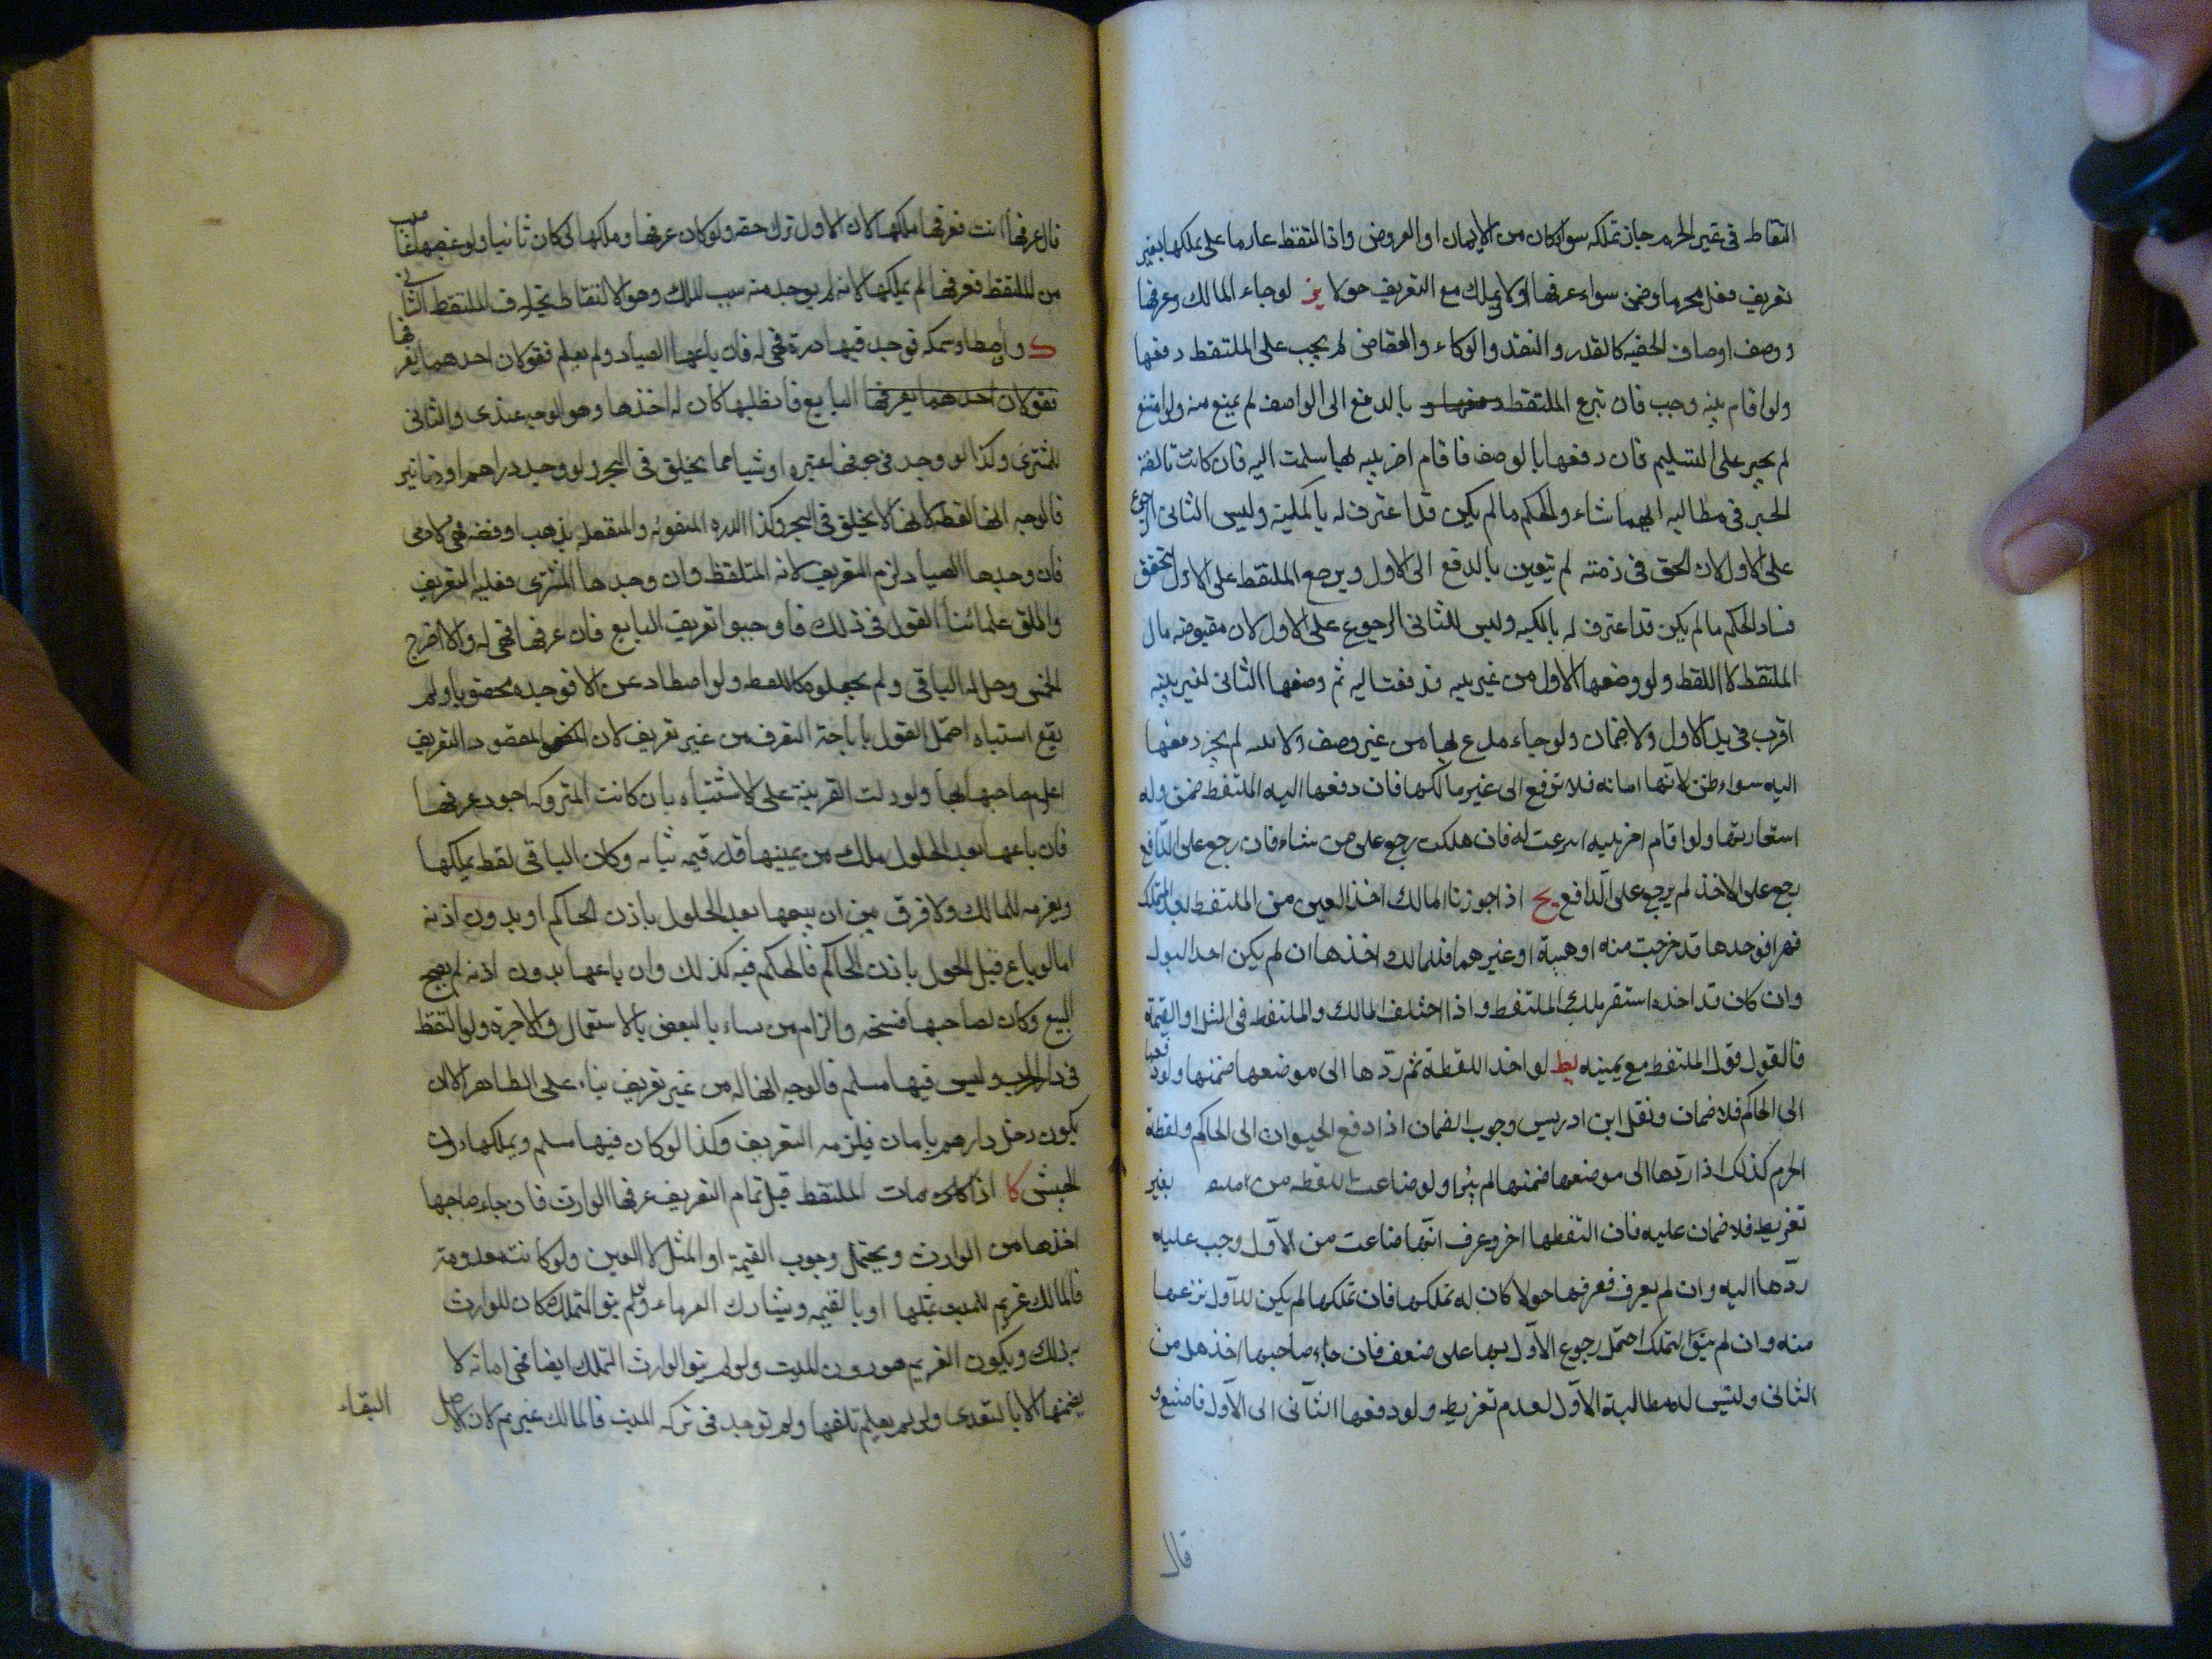 التقاط فى غير الحرم جاز تملكه سواء كان من الاثمان او العروض واذا التقط عازما على تملكها بغير
تعريف فعل محرما وضمن سواء عرفها اولا ويملك مع التعريف حولا يز لو جاء المالك وعرفها
ووصف اوصاف الخفيه كالقدر والنقد والوكاء والعفاص لم يجب على الملتقط دفعها
ولو اقام بينه وجب فان تبرع الملتقط بالدفع الى الواصف لم يمنع منه ولو امتنع
لم يجبر على التسليم فان دفعها بالوصف فاقام اخر بينه بها سلمت اليه فان كانت تالفة
الخبر فى مطالبه ايهما شاء والحكم ما لم يكن قد اعترف له بالملكية وليس الثانى الرجوع
على الاول لان الحق فى ذمته لم يتعين بالدفع الى الاول ويرجع الملتقط على الاول لتحقق
فساد الحكم ما لم يكن قد اعترف له بالملكيه وليس للثانى الرجوع على الاول لان مقبوضه مال
الملتقط لا اللقط ولو وصفها الاول من غير بينه فدفعت اليه ثم وصفها الثانى لغير بينه
اقرت فى يد الاول ولا ضمان ولو جاء مدع بها من غير وصف ولا بينه لم يجز دفعها
اليه سواء ظن لانها امانه فلا ترفع الى غير مالكها فان دفعها اليه الملتقط ضمن وله
استعارتها ولو اقام اخر بينه انزعت له فان هلكت رجع على من شاء فان رجع على الدافع
رجع على الاخذ لم يرجع على الدافع يح اذا جوزنا المالك اخذ العين من الملتقط بعد التملك
قهرا فوجدها قد خرجت منه او هبة او غيرهما فللمالك اخذها ان لم يكن اخد البدل
وان كان قد اخذه استقر ملك الملتقط واذا اختلف المالك والملتقط فى المثل او القيمة
فالقول قول الملتقط مع يمينه يط لو اخذ اللقطة ثم ردها الى موضعها ضمنها ولو دفعها
الى الحاكم فلا ضمان ونقل ابن ادريس وجوب الضمان اذا دفع الحيوان الى الحاكم ولقطة
الحرم كذلك اذا ردها الى موضعها ضمنها لم يبرا ولو ضاعت اللقطه من بغير
تفريط فلا ضمان عليه فان التقطها اخر وعرف انها ضاعت من الاول وجب عليه
ردها اليه وان لم يعرف فعرفها حولا كان له تملكها فان تملكها لم يكن للاول نزعها
منه وان لم ينو التملك احتمل رجوع الاول بها على ضعف فان جاء صاحبها اخذها من
الثانى وليس له مطالبة الاول لعدم تفريطه ولو دفعها الثانى الى الاول فامتنع و
قال
قال عرفها انت فعرفها ملكها لان الاول ترك حقه ولو كان عرفها وملكها لى كان ثانيا ولو غصبها غاصب
من الملتقط فعرفها لم يملكها لانه لم يوجد منه سبب الملك وهو الالتقاط بخلاف الملتقط الثانى
ك ولو اصطاد سمكه فوجد فيها درة فهى له فان باعها الصياد ولم يعلم فقولان احدهما يعرفها
فقولان احدهما يعرفها البايع فان طلبها كان له اخذها وهو الوجه عندى والثانى
للمشترى وكذا لو وجد فى جوفها عنبره او شيا مما يخلق فى البحر ولو وجد دراهم او دنانير
فالوجه انها لقطه لانها لا يخلق فى البحر وكذا الدره المثقوبه والمتصله بذهب او فضه فهى كالادمى
فان وجدها الصياد لزم التعريف لانه الملتقط وان وجدها المشترى فعليه التعريف
واطلق علمائنا القول فى ذلك فاوجبوا تعريف البايع فان عرفها فهى له والا اخرج
الخمس وحل له الباقى ولم يجعلوه كاللقط ولو اصطاد غزالا فوجده مخضوبا ولم
يقع اشتباه احتمل القول باباحة التعرف من غير تعريف لان المقصود التعريف
اعلام صاحبها بها ولو دلت القرينة على الاشتباه بان كانت المتروكه اجود عرفها
فان باعها بعد الحلول ملك من يمينها قدر قيمه ثيابه وكان الباقى لقط يملكها
ويغرمه للمالك ولا فرق بين ان يبيعها بعد الحلول باذن الحاكم او بدون اذنه
اما لو باع قبل الحول باذن الحاكم فالحكم فيه كذلك وان باعها بدون اذنه لم يصح
البيع وكان لصاحبها فسخه والزام من شاء بالبعض بالاستعمال والاجرة ولو التقط
فى دار الحرب وليس فيها مسلم فالوجه انها له من غير تعريف بناء على الظاهر الا ان
يكون دخل دارهم بامان فيلزمه التعريف وكذا لو كان فيها مسلم ويملكها دون
الجيش كا اذا مات الملتقط قبل تمام التعريف عرفها الوارث فان جاء صاحبها
اخذها من الوارث ويحتمل وجوب القيمة او المثل لا العين ولو كانت معدومة
فالمالك غريم للميت بمثلها او بالقيمه ويشارك الغرماء ولو لم ينو التملك كان للوارث
له ذلك ويكون الغريم هو دون الميت ولو لم ينو الوارث التملك ايضا فهى امانه لا
يضمنها الا بالتعدى ولو لم يعلم تلفها ولم توجد فى تركه الميت فالمالك غريم لان الاصل
البقاء